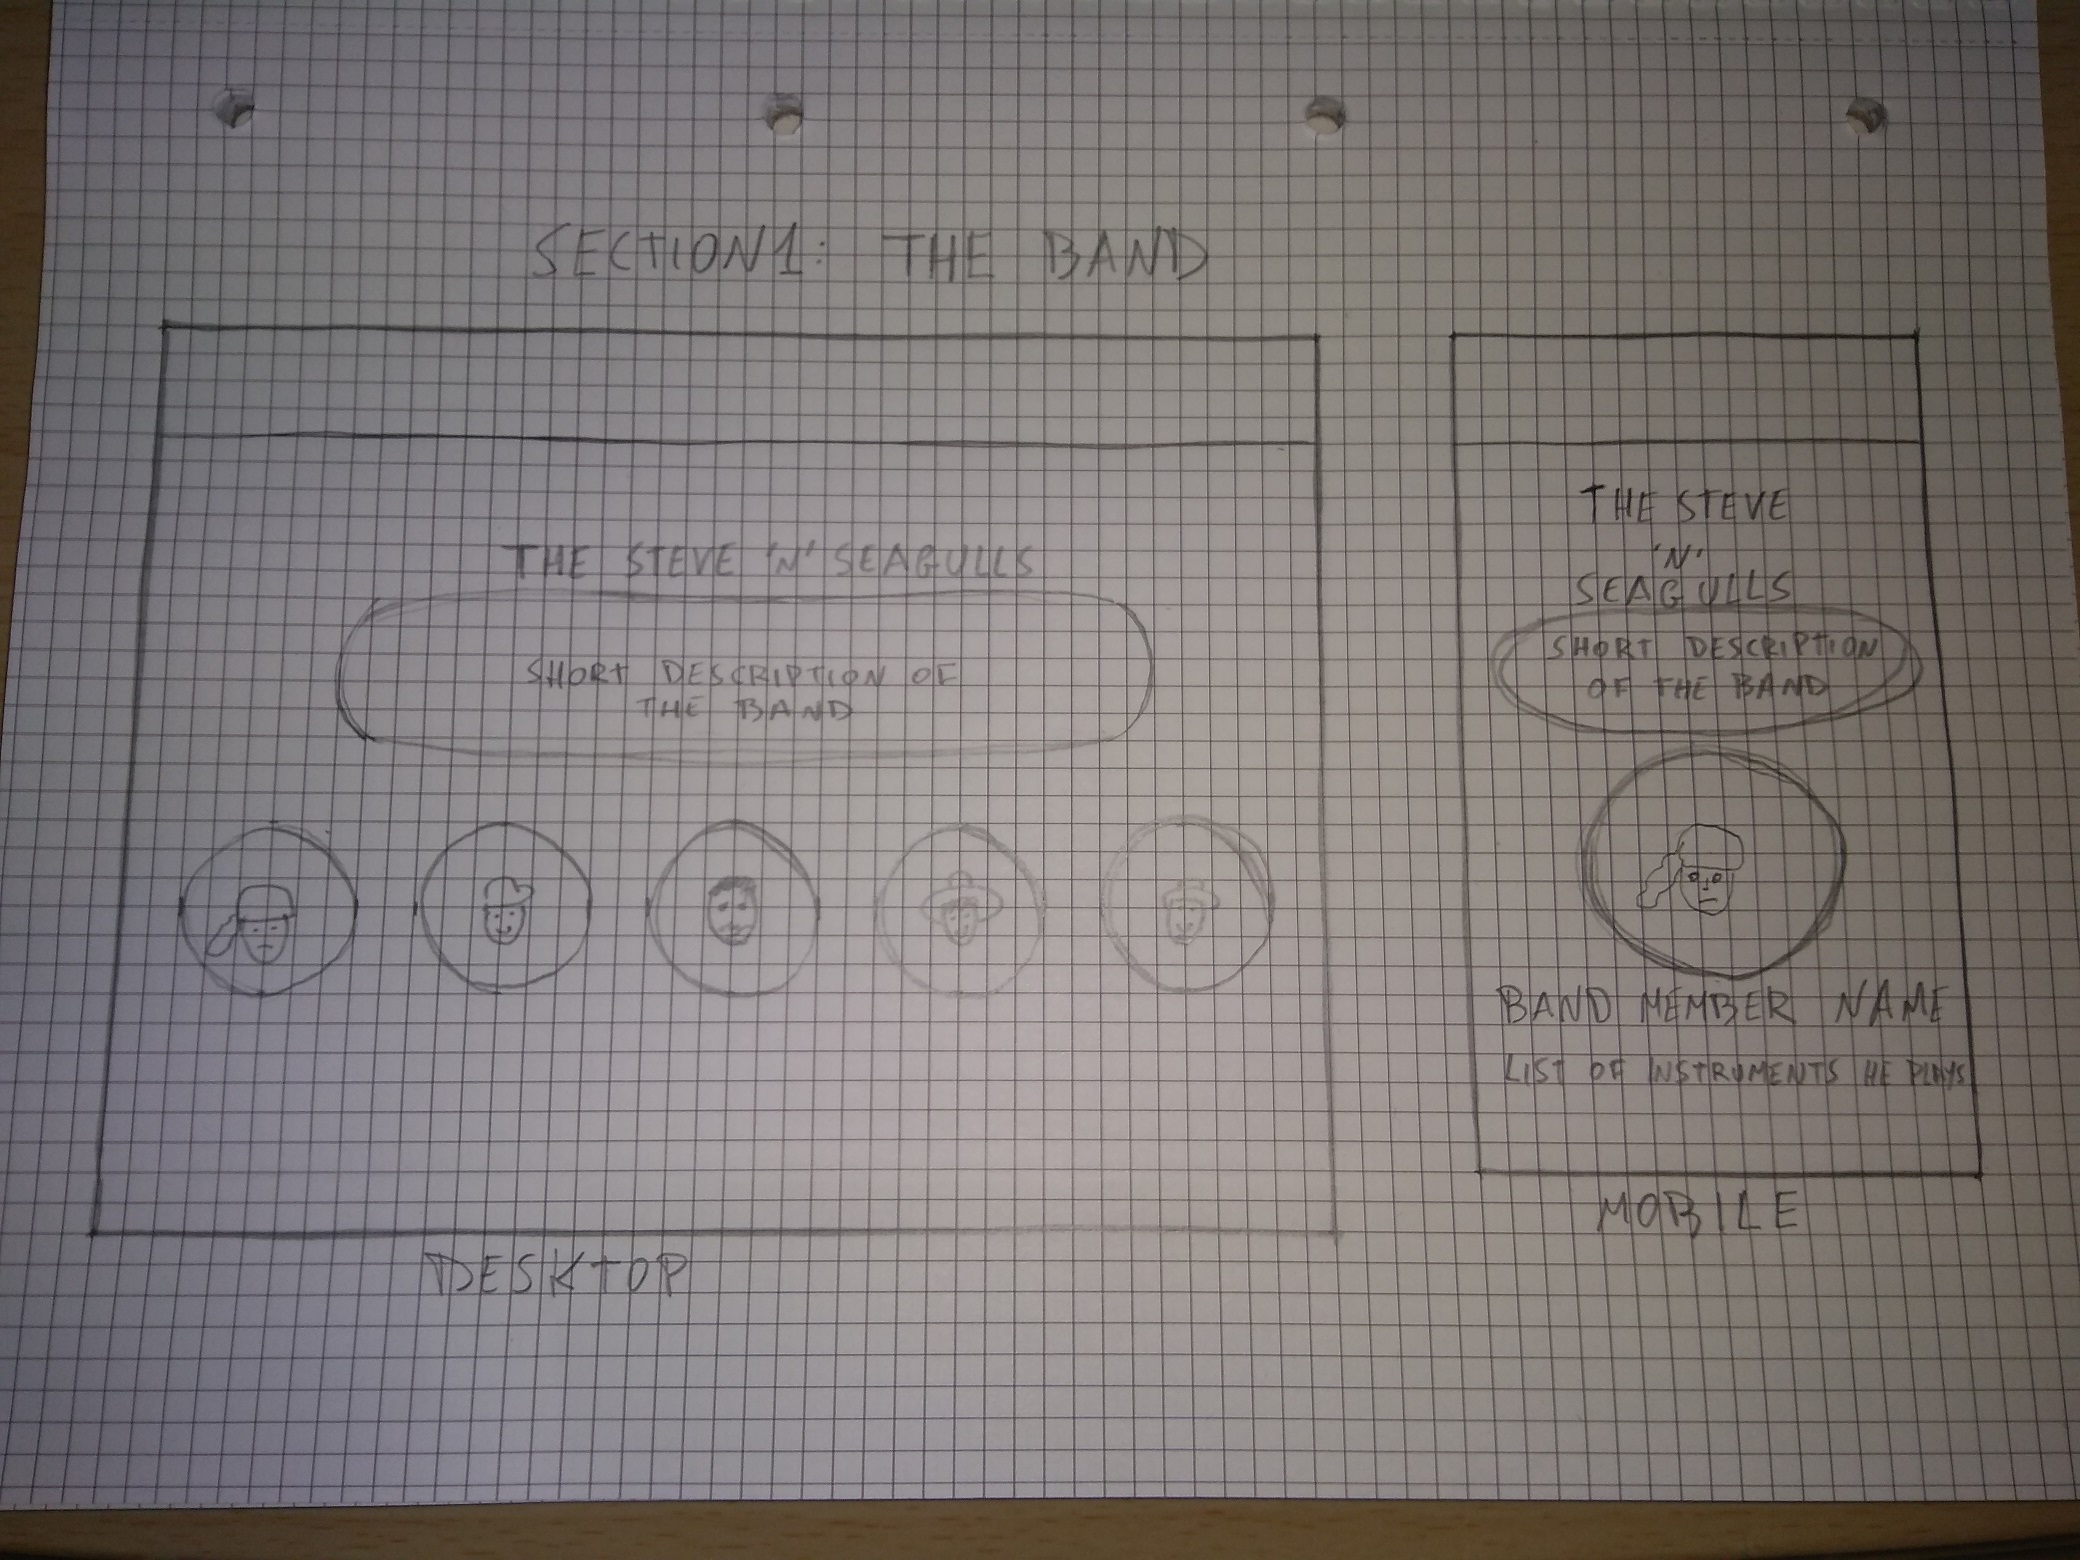 SECTION1: THE BAND
THE STEVE 'N' SEAGULLS
SHORT DESCRIPTION OF
THE BAND
DESKTOP
THE STEVE
'N'
SEAGULLS
SHORT DESCRIPTION
OF THE BAND
BAND MEMBER NAME
LIST OF INSTRUMENTS HE PLAYS
MOBILE